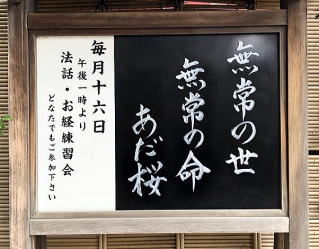 無常の世
無常の命
あだ桜
毎月十六日
午後一時より
法話・お経練習会
どなたでもご参加下さい